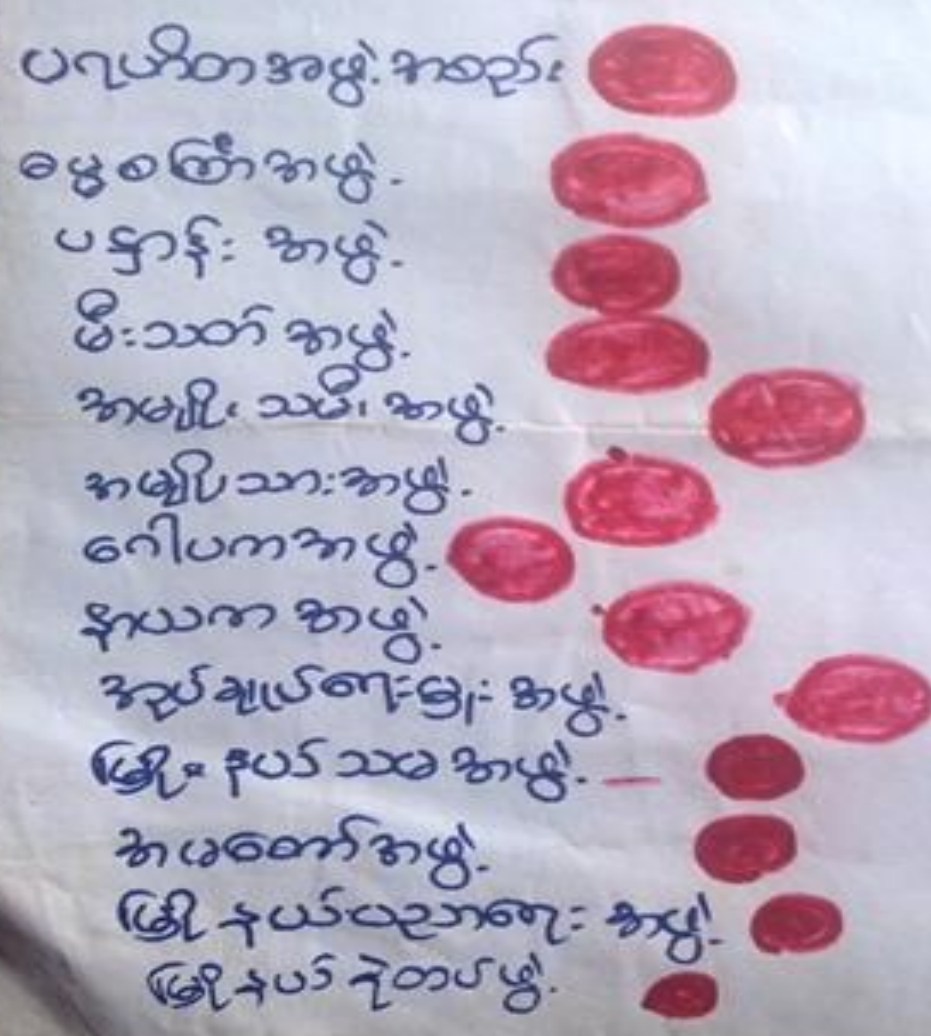 ပရဟိတအဖွဲ့အစည်း
ဓမ္မစကြာအဖွဲ့.
ပဋ္ဌာန်း အဖွဲ့.
မီးသတ် အဖွဲ့.
အမျိုး သမီး အဖွဲ့.
အမျိုးသားအဖွဲ့.
ဂေါပကအဖွဲ့.
နာယက အဖွဲ့.
အုပ်ချုပ်ရေးမှုး အဖွဲ့.
မြို့နယ် သမ အဖွဲ့.
အမတော်အဖွဲ့.
မြို့နယ်ပညာရေး အဖွဲ့.
မြို့နယ် ရဲတပ်ဖွဲ့.